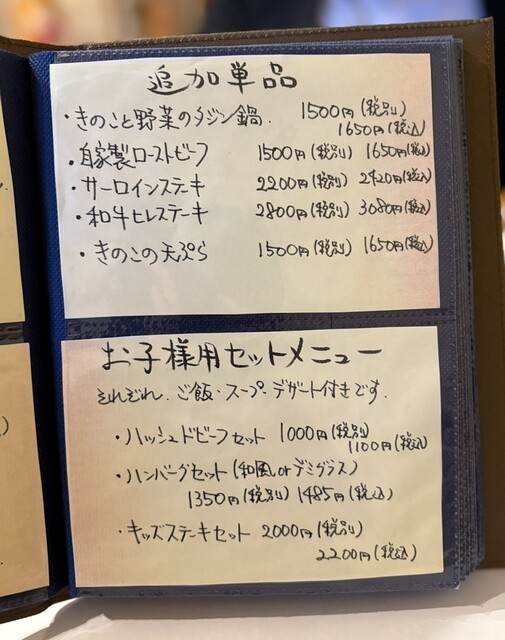 追加単品
・きのこと野菜のタジン鍋. 1500円(税別)
1650円(税込)
・自家製ローストビーフ 1500円(税別) 1650円(税込)
・サーロインステーキ 2200円(税別) 2420円(税込)
・和牛ヒレステーキ 2800円(税別) 3080円(税込)
・きのこの天ぷら 1500円(税別) 1650円(税込)
お子様用セットメニュー
それぞれ、ご飯・スープ・デザート付きです.
・ハッシュドビーフセット 1000円(税別)
1100円(税込)
・ハンバーグセット(和風orデミグラス)
1350円(税別) 1485円(税込)
・キッズステーキセット 2000円(税別)
2200円(税込)